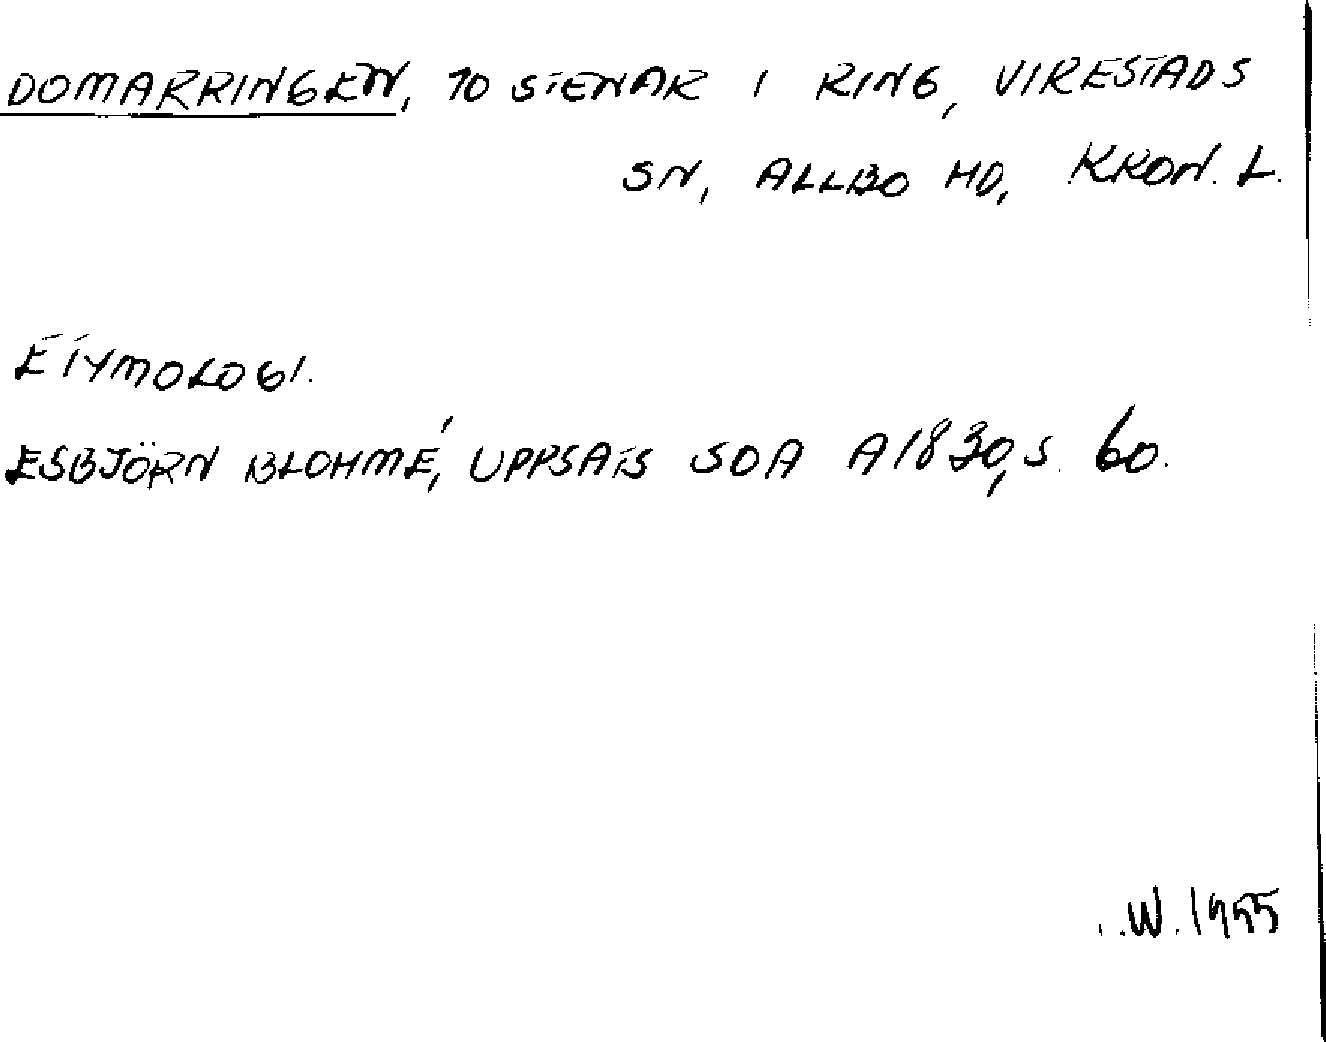 DOMARRINGEN, 10 STENAR I RING, VIRESTADS
SN, ALLBO HD, KRON. L.
ETYMOLOGI.
ESBJÖRN BLOHMÉ, UPPSATS SOA A1830, S. 60.
W. 1955